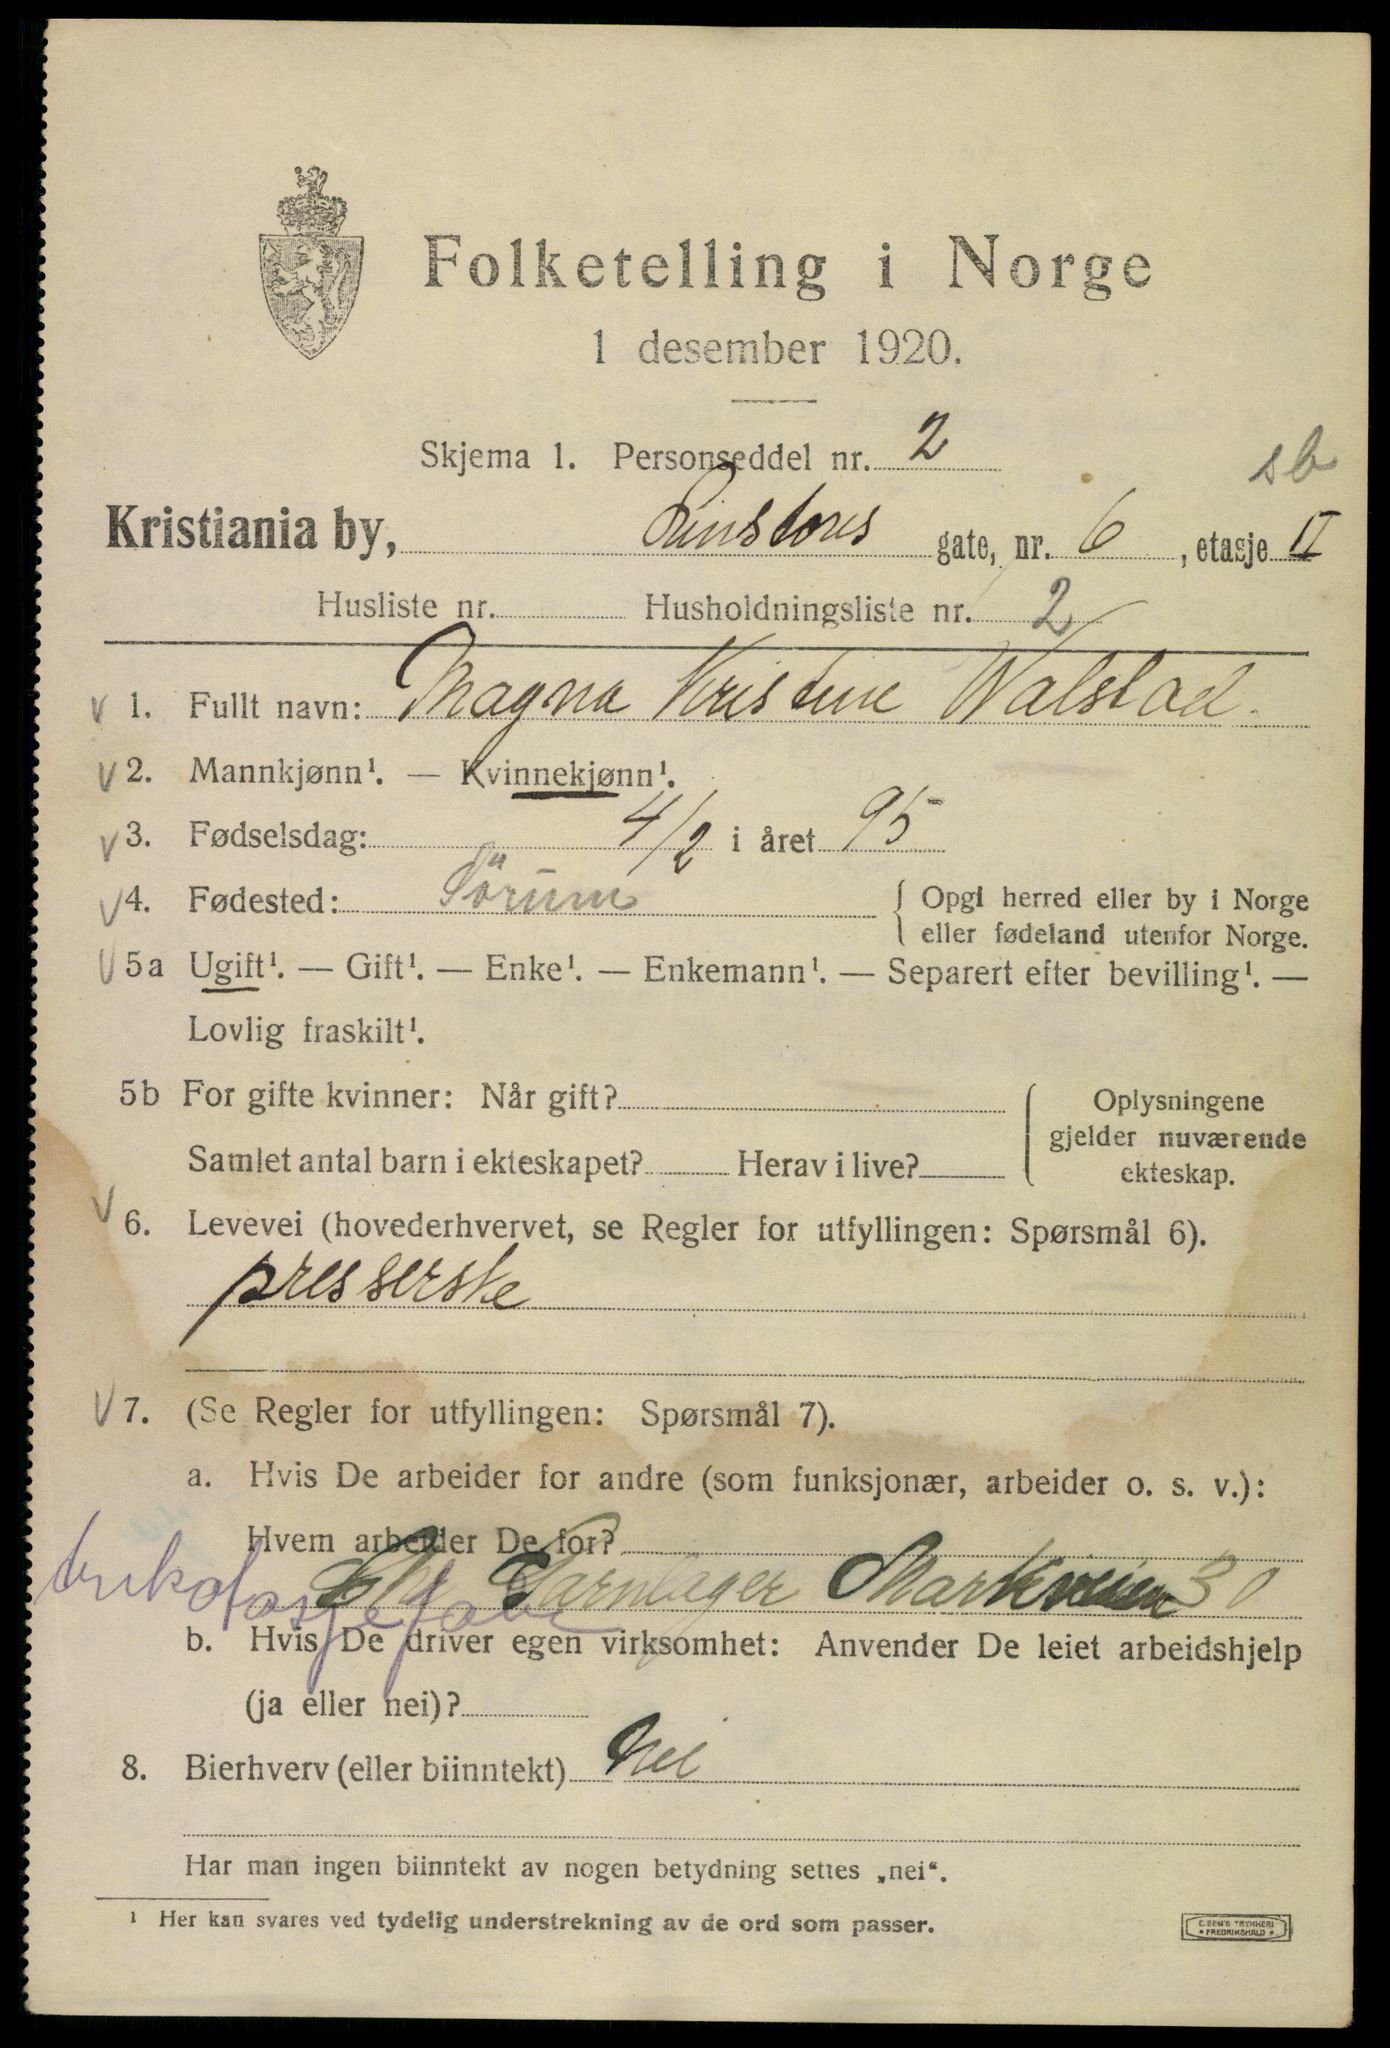 Folketelling i Norge
1 desember 1920.
Skjema 1. Personseddel nr. 2
sb
Kristiania by, Linstows gate, nr. 6, etasje II
Husliste nr. Husholdningsliste nr. 2
V 1. Fullt navn: Magna Kristine Walstad.
V 2. Mannkjønn¹. — Kvinnekjønn¹.
V 3. Fødselsdag: 4/2 i året 95
V 4. Fødested: Sörum { Opgi herred eller by i Norge
eller fødeland utenfor Norge.
V 5a Ugift¹. — Gift¹. — Enke¹. — Enkemann¹. — Separert efter bevilling¹. —
Lovlig fraskilt¹.
5b For gifte kvinner: Når gift? { Oplysningene
gjelder nuværende
Samlet antal barn i ekteskapet? Herav i live? ekteskap.
V 6. Levevei (hovederhvervet, se Regler for utfyllingen: Spørsmål 6).
presserske
V 7. (Se Regler for utfyllingen: Spørsmål 7).
a. Hvis De arbeider for andre (som funksjonær, arbeider o. s. v.):
Hvem arbeider De for?
Chr Garnlager Markveien 30
trikotasjefabr
b. Hvis De driver egen virksomhet: Anvender De leiet arbeidshjelp
(ja eller nei)?
8. Bierhverv (eller biinntekt) Nei
Har man ingen biinntekt av nogen betydning settes „nei“.
¹ Her kan svares ved tydelig understrekning av de ord som passer.
E. SEM'S TRYKKERI
* FREDRIKSHALD *